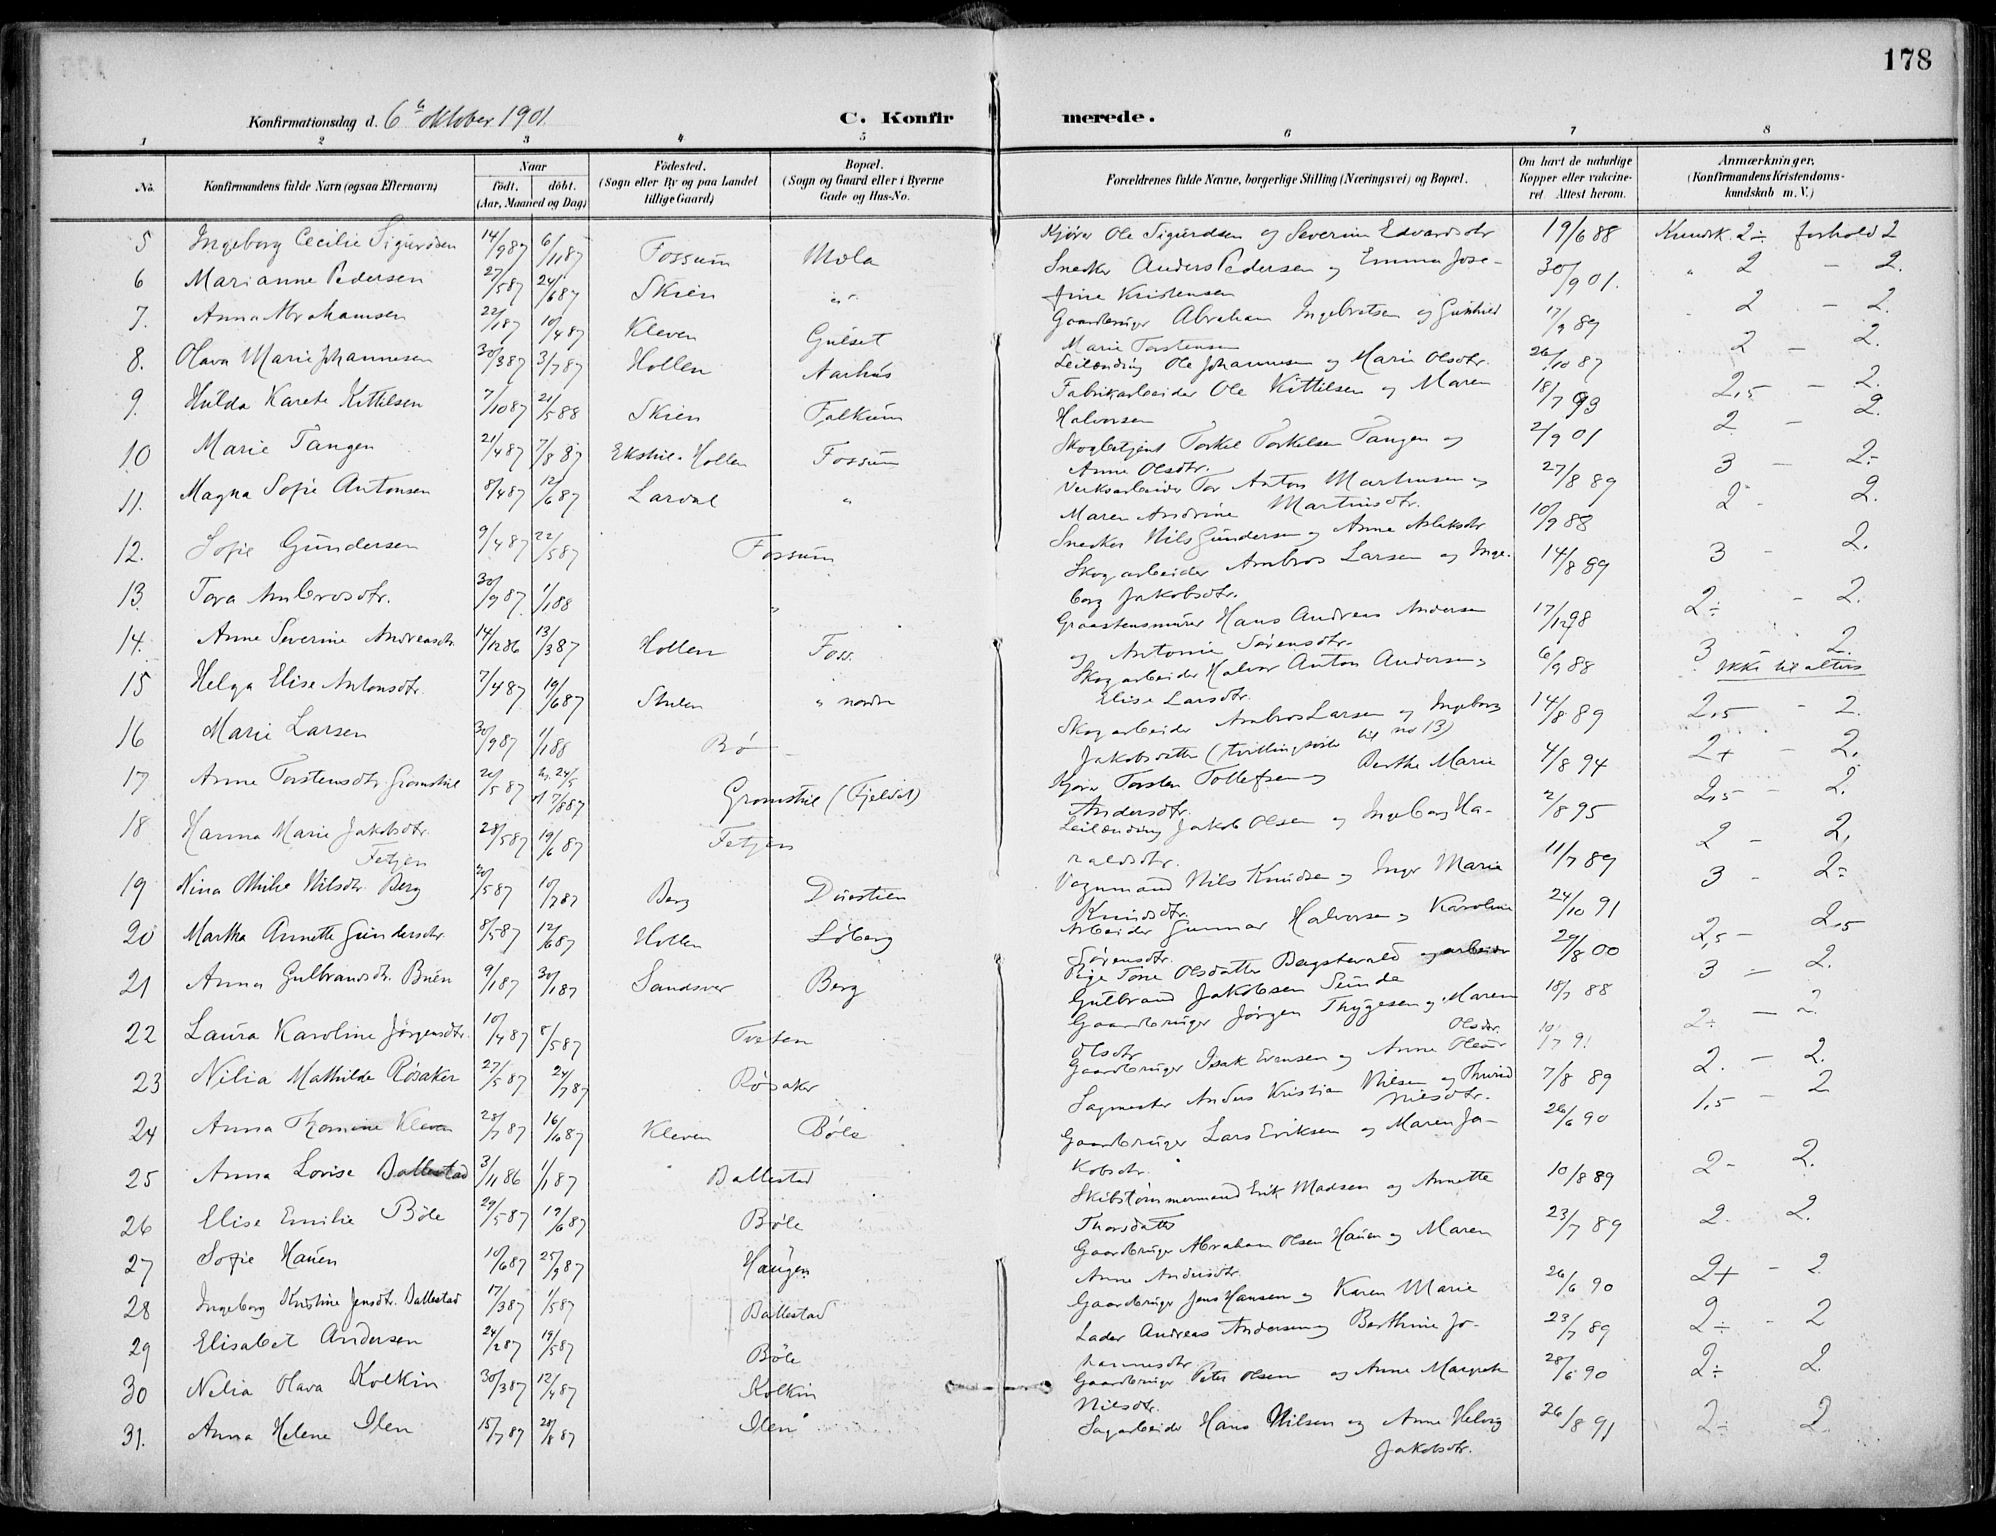 178
Konfirmationsdag d. 6te oktober 1901. C. Konfirmerede.
1 2 3 4 5 6 7 8
No. Konfirmandens fulde Navn (ogsaa Efternavn) Naar født. døbt. (Aar, Maaned og Dag) Fødested. (Sogn eller By og paa Landet tillige Gaard) Bopæl. (Sogn og Gaard eller i Byerne Gade og Hus-No. Forældrenes fulde Navne, borgerlige Stilling (Næringsvei) og Bopæl. Om havt de naturlige Kopper eller vakcineret Attest herom. Anmærkninger. (Konfirmandens Kristendomskundskab m. V.)
5 Ingeborg Cecilie Sigurdsen 14/9 87 6/11 87 Fossum Mæla Kjører Ole Sigurdsen og Severine Edvardsdtr 19/6 88 Kundsk. 2÷ forhold 2
6 Marianne Pedersen 27/5 87 24/6 87 Skien " Snedker Anders Pedersen og Emma Jose- 30/9 01. " 2 – 2.
fine Kristensen
7. Anna Abrahamsen 22/1 87 10/4 87 Kleven Gulset Gaardbruger Abraham Ingebretsen og Gunhild 17/9 89 2 – 2.
Marie Torstensen
8. Olava Marie Johannesen 30/3 87 3/7 87 Hollen Aarhus Leilænding Ole Johannesen og Marie Olsdtr. 26/10 87 2 – 2.
9. Hulda Karete Kittilsen 7/10 87 21/5 88 Skien Falkum Fabrikarbeider Ole Kittilsen og Maren 18/7 93 2,5 – 2.
Halvorsen
10 Marie Tangen 21/4 87 7/8 87 Ekshil. Hollen Fossum Skogbetjent Torkel Torkelsen Tangen og 2/9 01 2 – 2.
Anne Olsdtr.
11. Magna Sofie Antonsen 8/4 87 12/6 87 Larvol " Verksarbeider Tor Anton Marthusen og 27/8 89 3 – 2÷
Maren Andrine Martinsdtr.
12. Sofie Gundersen 9/4 87 22/5 87 Fossum Snedker Nils Gundersen og Anne Aslaksdtr 10/9 88 2 - 2.
13. Tora Ambrosdtr. 30/9 87 1/1 88 " Skogarbeider Ambros Larsen og Inge- 14/8 89 3 – 2.
borg Jakobsdtr.
14. Anne Severine Andreasdtr. 14/12 86 13/3 87 Hollen Foss Graastensmurer Hans Andreas Andersen 17/12 98 2÷ – 2.
og Antonie Sørensdtr.
15 Helga Elise Antonsdtr. 7/4 87 19/6 87 " nordre Skogarbeider Halvor Anton Andersen og 6/9 88 3 2.
ikke til alters
Elise Larsdtr.
16 Marie Larsen 30/9 87 1/1 88 Bø Skogarbeider Ambros Larsen og Ingeborg 14/8 89 2,5 – 2.
Jakobsdatter (tvillingsøster til no 13)
17 Anne Torstensdtr. Gromstul 20/5 87 24/5 7/8 87 Gromstul (Fjeldet) Kjører Torsten Tollefsen og Berthe Marie 4/8 94 2+ – 2.
Andersdtr.
18 Hanna Marie Jakobsdtr. Fetjen 28/5 87 19/6 87 Fetjen Leilænding Jakob Olsen og Ingeborg Ha- 2/8 95 2,5 – 2.
raldsdtr.
19 Nina Othilie Nilsdtr. Berg 20/5 87 10/7 87 Berg Duestien Vognmand Nils Knudsen og Inger Marie 11/7 89 2 – 2.
Knudsdtr.
20 Martha Annette Gundersdtr. 8/5 87 12/6 87 Hollen Løberg Arbeider Gunnar Halvorsen og Karoline 24/10 91 3 – 2÷
Sørensdtr.
21 Anna Gulbrandsdtr. Bruen 9/1 87 30/1 87 Sandsver Berg Pige Tone Olsdatter Bagstevold og arbeider 29/8 00 2,5 – 2,5
Gulbrand Jakobsen Sunde
22 Laura Karoline Jørgensdtr. 10/4 87 8/5 87 Tveten Gaardbruger Jørgen Thygesen og Maren 18/7 88 3 – 2.
Olsdtr.
23 Nilia Mathilde Røsaker 27/5 87 24/7 87 Røsaker Gaardbruger Isak Evensen og Anne Olea Olsdtr. 10/7 91 2÷ – 2.
24 Anna Thomine Kleven 28/7 87 16/6 87 Kleven Bøle Sagmester Anders Kristian Nilsen og Thurid 7/8 89 2. – 2.
Nilsdtr.
25 Anna Lovise Ballestad 3/11 86 1/1 87 Ballestad Gaardbruger Lars Eriksen og Maren Ja- 26/6 90 1,5 – 2
kobsdtr.
26 Elise Emilie Bøle 29/5 87 19/6 87 Bøle Skibstømmermand Erik Madsen og Annette 10/8 89 2- 2.
Thorsdatter
27 Sofie Hauen 10/6 87 25/9 87 Haugen Gaardbruger Abraham Olsen Hauen og Maren 23/7 89 2. 2.
Anne Andersdtr.
28 Ingeborg Kristine Jensdtr. Ballestad 17/3 87 1/5 87 Ballestad Gaardbruger Jens Hansen og Karen Marie 26/6 90 2+ – 2.
29 Elisabet Andersen 24/2 87 19/5 87 Bøle Lader Andreas Andersen og Berthine Jo- 23/7 89 2÷ – 2
hannesdtr.
30 Nelia Olava Kolkin 30/3 87 12/4 87 Kolkin Gaardbruger Peter Olsen og Anne Margrete 28/6 90 2÷ 2.
Nilsdtr.
31. Anna Helene Ilen 15/7 87 28/8 87 Ilen Sagarbeider Hans Nilsen og Anne Helvig 26/8 91 2÷ 2.
Jakobsdtr.